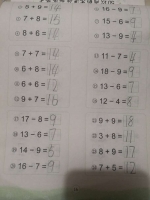 5 + 9 = 14
16 - 9 = 7
7 + 8 = 15
15 - 6 = 9
8 + 8 = 16
13 - 9 = 4
7 + 7 = 14
11 - 7 = 4
6 + 8 = 14
18 - 9 = 9
6 + 6 = 12
13 - 6 = 7
9 + 7 = 16
12 - 4 = 8
17 - 8 = 9
9 + 9 = 18
13 - 6 = 7
3 + 8 = 11
14 - 9 = 5
8 + 9 = 17
16 - 7 = 9
7 + 5 = 12